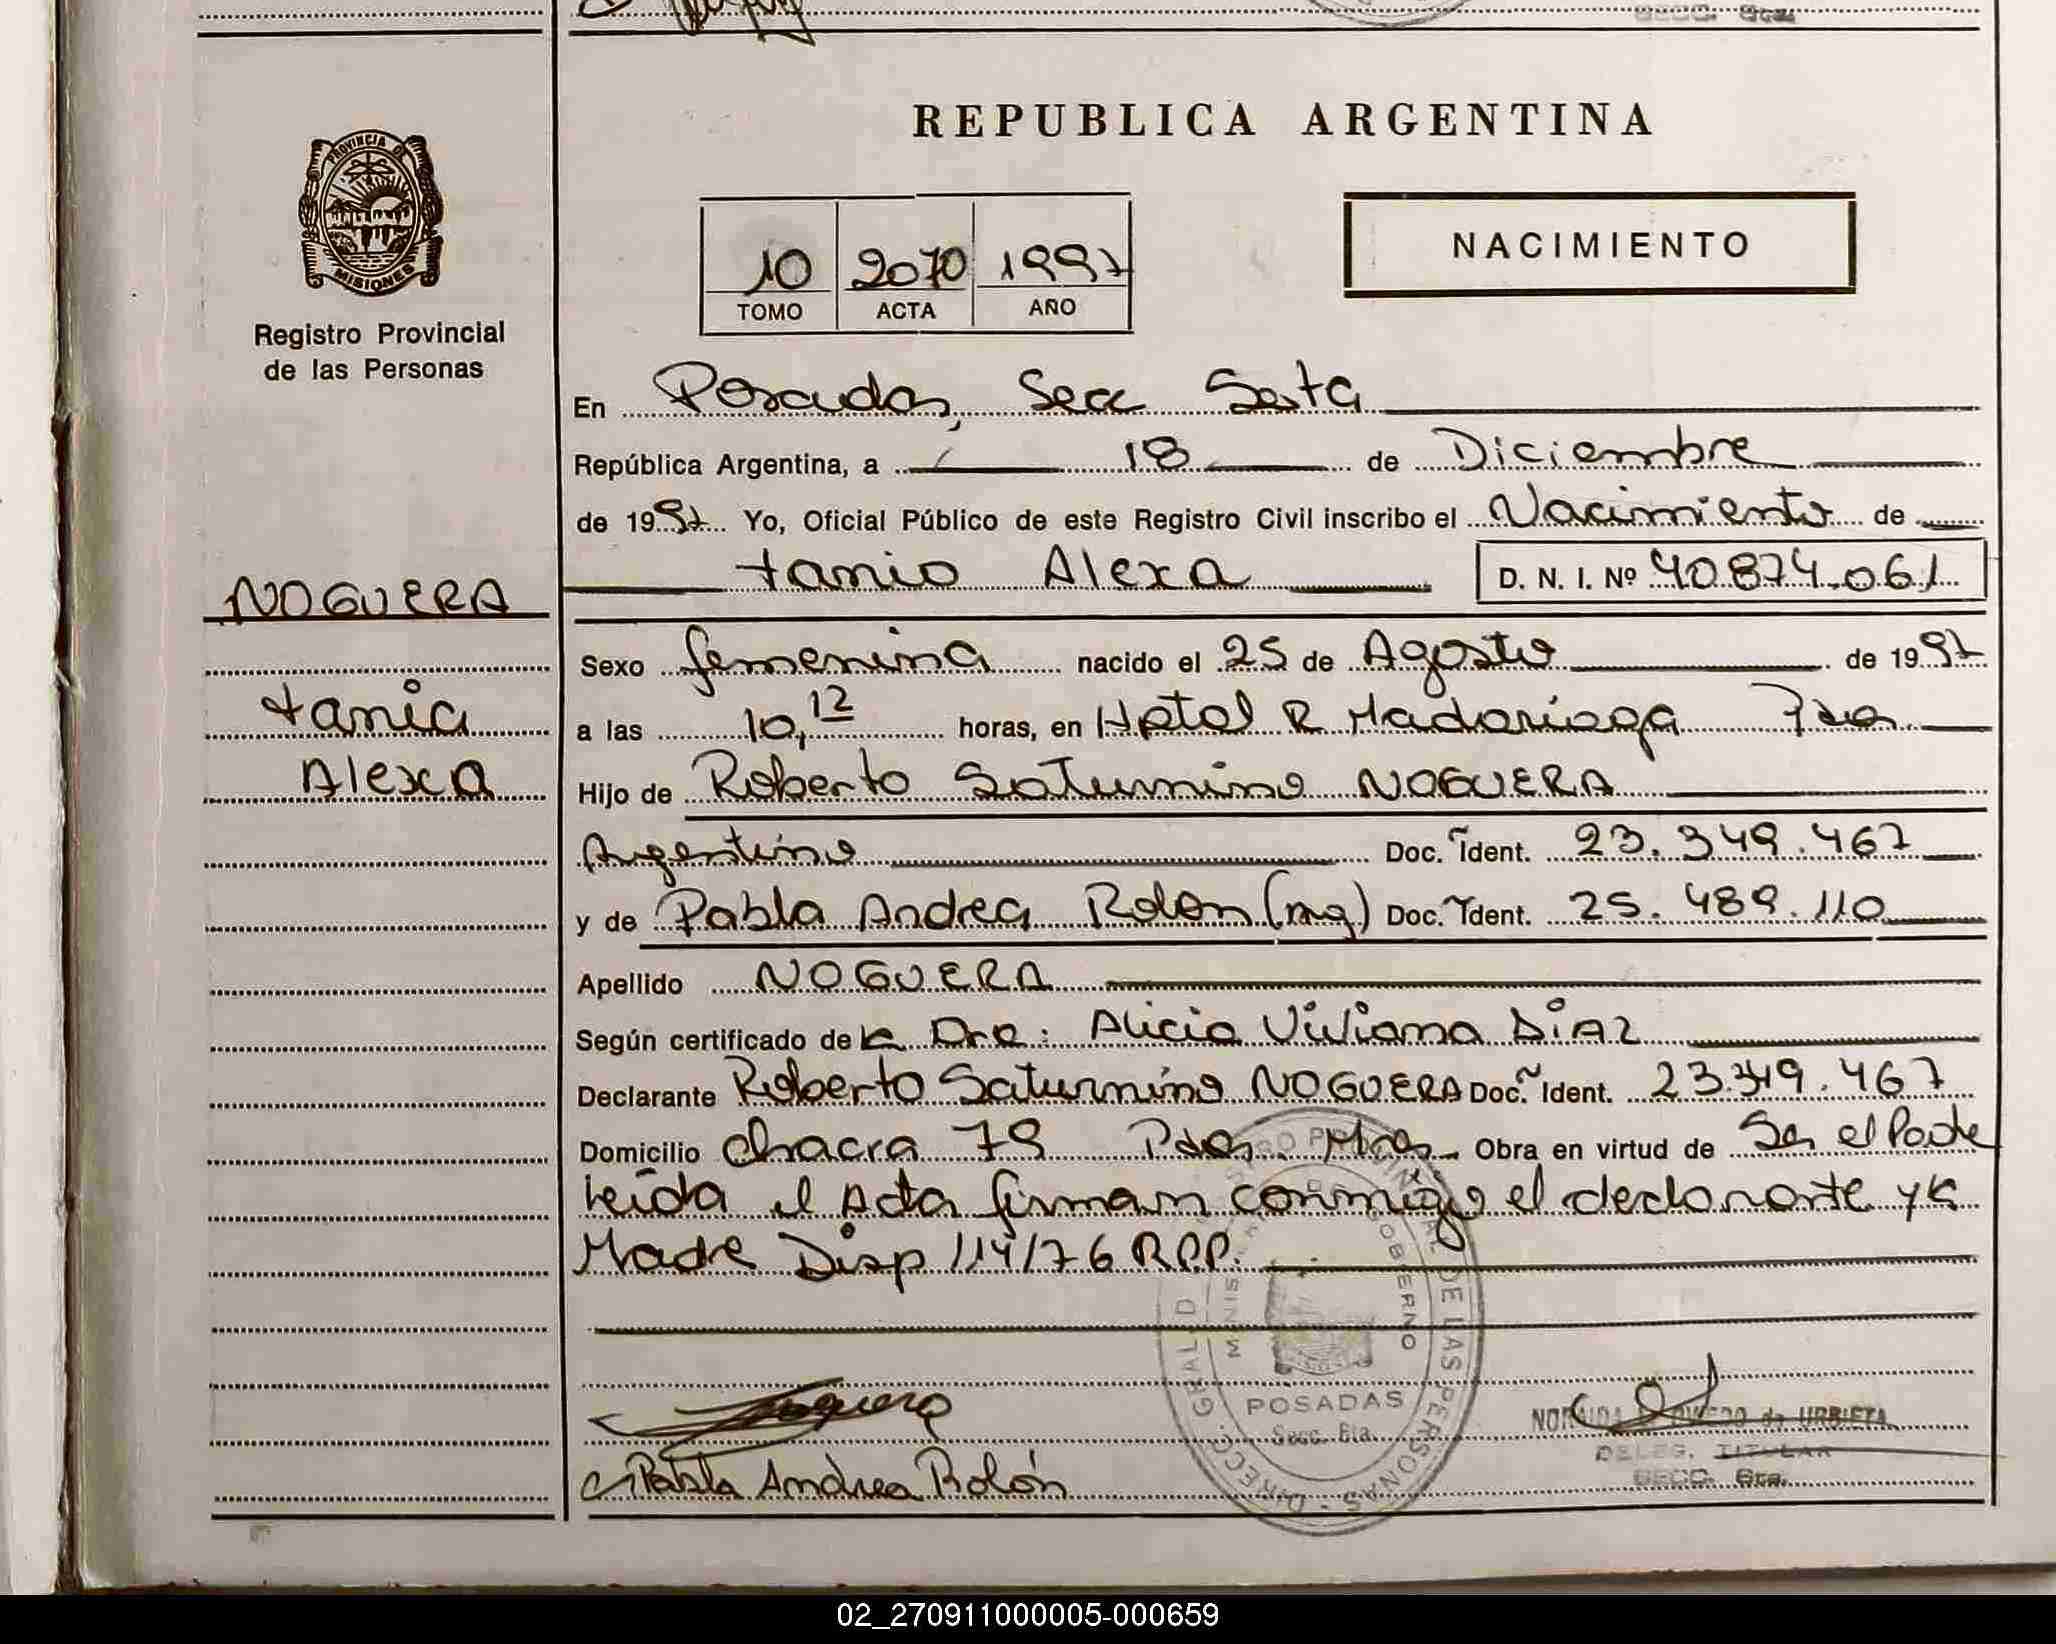 SECC. 6ta.
PROVINCIA DE
MISIONES
Registro Provincial
de las Personas
NOGUERA
tania
Alexa
REPUBLICA ARGENTINA
10 2070 1997
TOMO ACTA AÑO
NACIMIENTO
En Posadas, Secc Sexta
República Argentina, a 18 de Diciembre
de 1997 Yo, Oficial Público de este Registro Civil inscribo el Nacimiento de
tania Alexa D. N. I. Nº 40.874.061
Sexo femenina nacido el 25 de Agosto de 1997
a las 10,12 horas, en Hptal R Madariaga Pdas
Hijo de Roberto Saturnino NOGUERA
Argentino Doc. Ident. 23.349.467
y de Pabla Andrea Rolon (arg) Doc. Ident. 25.489.110
Apellido NOGUERA
Según certificado de la Dra: Alicia Viviana DiAz
Declarante Roberto Saturnino NOGUERA Doc. Ident. 23.349.467
Domicilio chacra 79 Pdas. Mnes. Obra en virtud de Ser el Padre
Leida el Acta firman conmigo el declarante y la
Madre Disp 114/76 R.P.P.
DIRECC. GRAL. D REGISTRO PROVINCIAL DE LAS PERSONAS
MINIS GOBIERNO
POSADAS
Secc. 6ta.
Noguera
Pabla Andrea Rolón
NORAIDA OVIEDO de URBIETA
DELEG. TITULAR
SECC. 6ta.
02_270911000005-000659